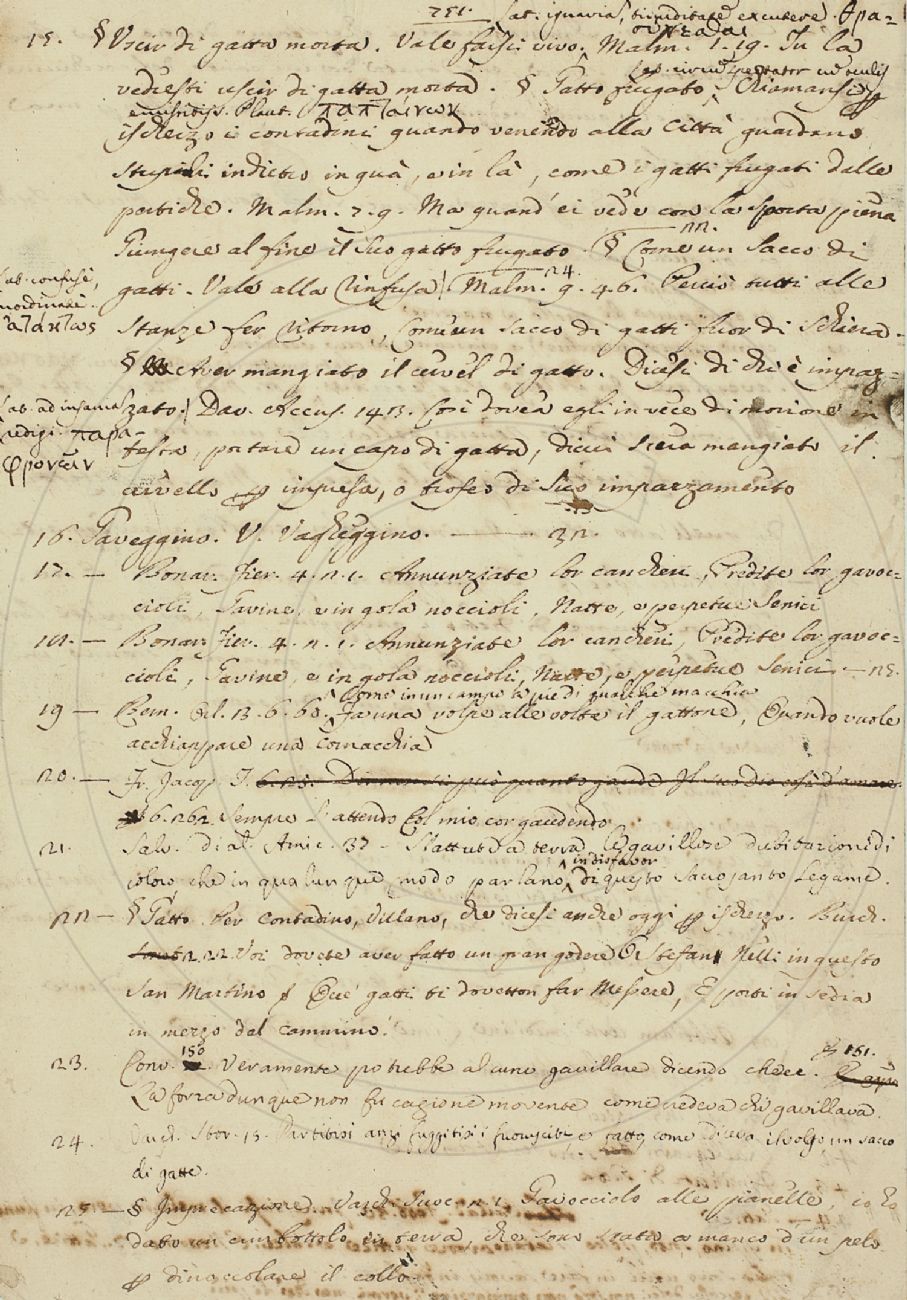 751. Lat. ignaviā, timiditate excutere. θρα-
συνεσθαι
15. § Uscir di gatta morta. Vale farsi vivo. Malm. 1. 19. Tu la
vedresti uscir di gatta morta. § Gatto frugato, Chiamansi p
emissitiis. Plaut. παπταίνων
ischerzo i contadini quando venendo alla Città guardano
stupidi indietro in quà, e in là, come i gatti frugati dalle
pertiche. Malm. 7. 9. Ma quand' ei vede con la sporta piena
Giungere al fine il suo gatto frugato. § Come un sacco di
Lat. confusè,
inordinatè.
ἀτάκτως
gatti. Vale alla Rinfusa. Malm. 9. 46. Perciò tutti alle
stanze fer ritorno, Com'un sacco di gatti fuor di schiera.
§ Aver mangiato il cervel di gatto. Dicesi di chi è impaz-
Lat. ad insania
redigi. παρα-
φρονεῖν
zato. Dav. Accus. 143. Così dovea egli in vece di morione in
testa, portare un capo di gatta, di cui s'era mangiato il
cervello p impresa, o trofeo di suo impazzamento
16. Gaveggino. V. Vagheggino.
17. — Bonar. Fier. 4. 2. 1. Annunziate lor cancheri, Predite lor gavoc-
cioli, Gavine, e in gola noccioli, Natte, e perpetue Senici
18. — Bonar. Fier. 4. 2. 1. Annunziate lor cancheri, Predite lor gavoc-
cioli, Gavine, e in gola noccioli, Natte, e perpetue Senici
Come in un campo a piè di qualche macchia
19 — Bern. Orl. 13. 6. 60. Fa una volpe alle volte il gattone, Quando vuole
acchiappare una cornacchia
20. — Fr. Jacop. T.
6. 26 2. Sempre l'attendo Col mio cor gaudendo
21. Salv. dial. Amic. 37. Statturà a terra le gavillose dubitazioni di
coloro, che in qualunque modo parlano in disfavor di questo sacrosanto legame.
22 — § Gatto. Per Contadino, Villano, che dicesi anche oggi p ischerzo. Burch.
2. 22. Voi dovete aver fatto un gran godere O Stefano Nelli in questo
San Martino E Que' gatti ti dovetton far Messere, E porti in sedia
in mezzo dal cammino.
23. Conv. 150. Veramente potrebbe alcuno gavillare dicendo che ec. E 151.
La forza dunque non fu cagione movente come credeva chi gavillava.
24. Varch. Stor. 15. Partitisi anzi fuggitisi i fuorusciti, e fatto, come diceva il volgo, un sacco
di gatte.
25 — § Imprecazione. Varch. Suoc. 2. 1. Gavocciolo alle pianelle, io ho
dato un cimbottolo in terra, che sono stato a manco d'un pelo
p dinoccolare il collo.